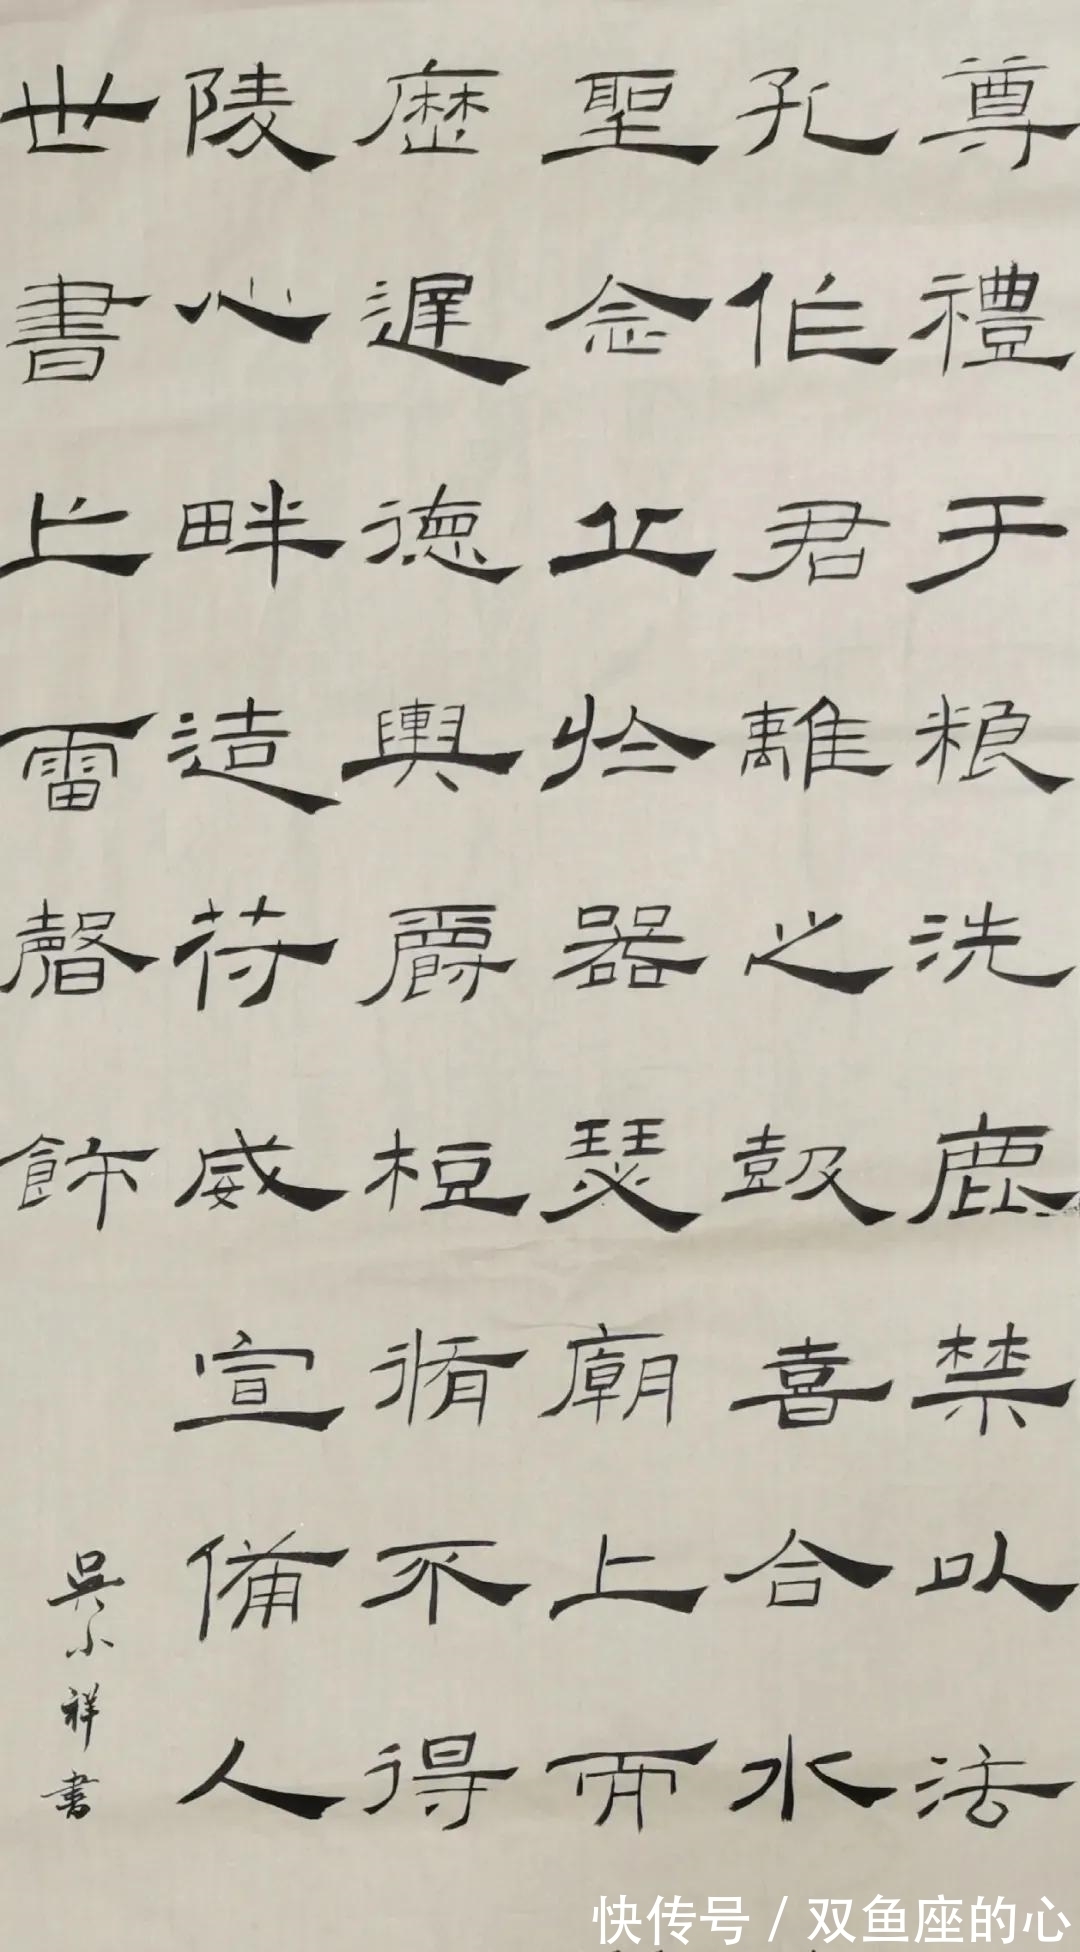 尊禮于粮洗鹿禁以法
孔作君離之鼓喜合水
聖念於器瑟廟上而
歷遲德輿爵梪脩不得
陵心畔造符威宣備人
世書雷飾
吴小祥書
快传号 / 双鱼座的心